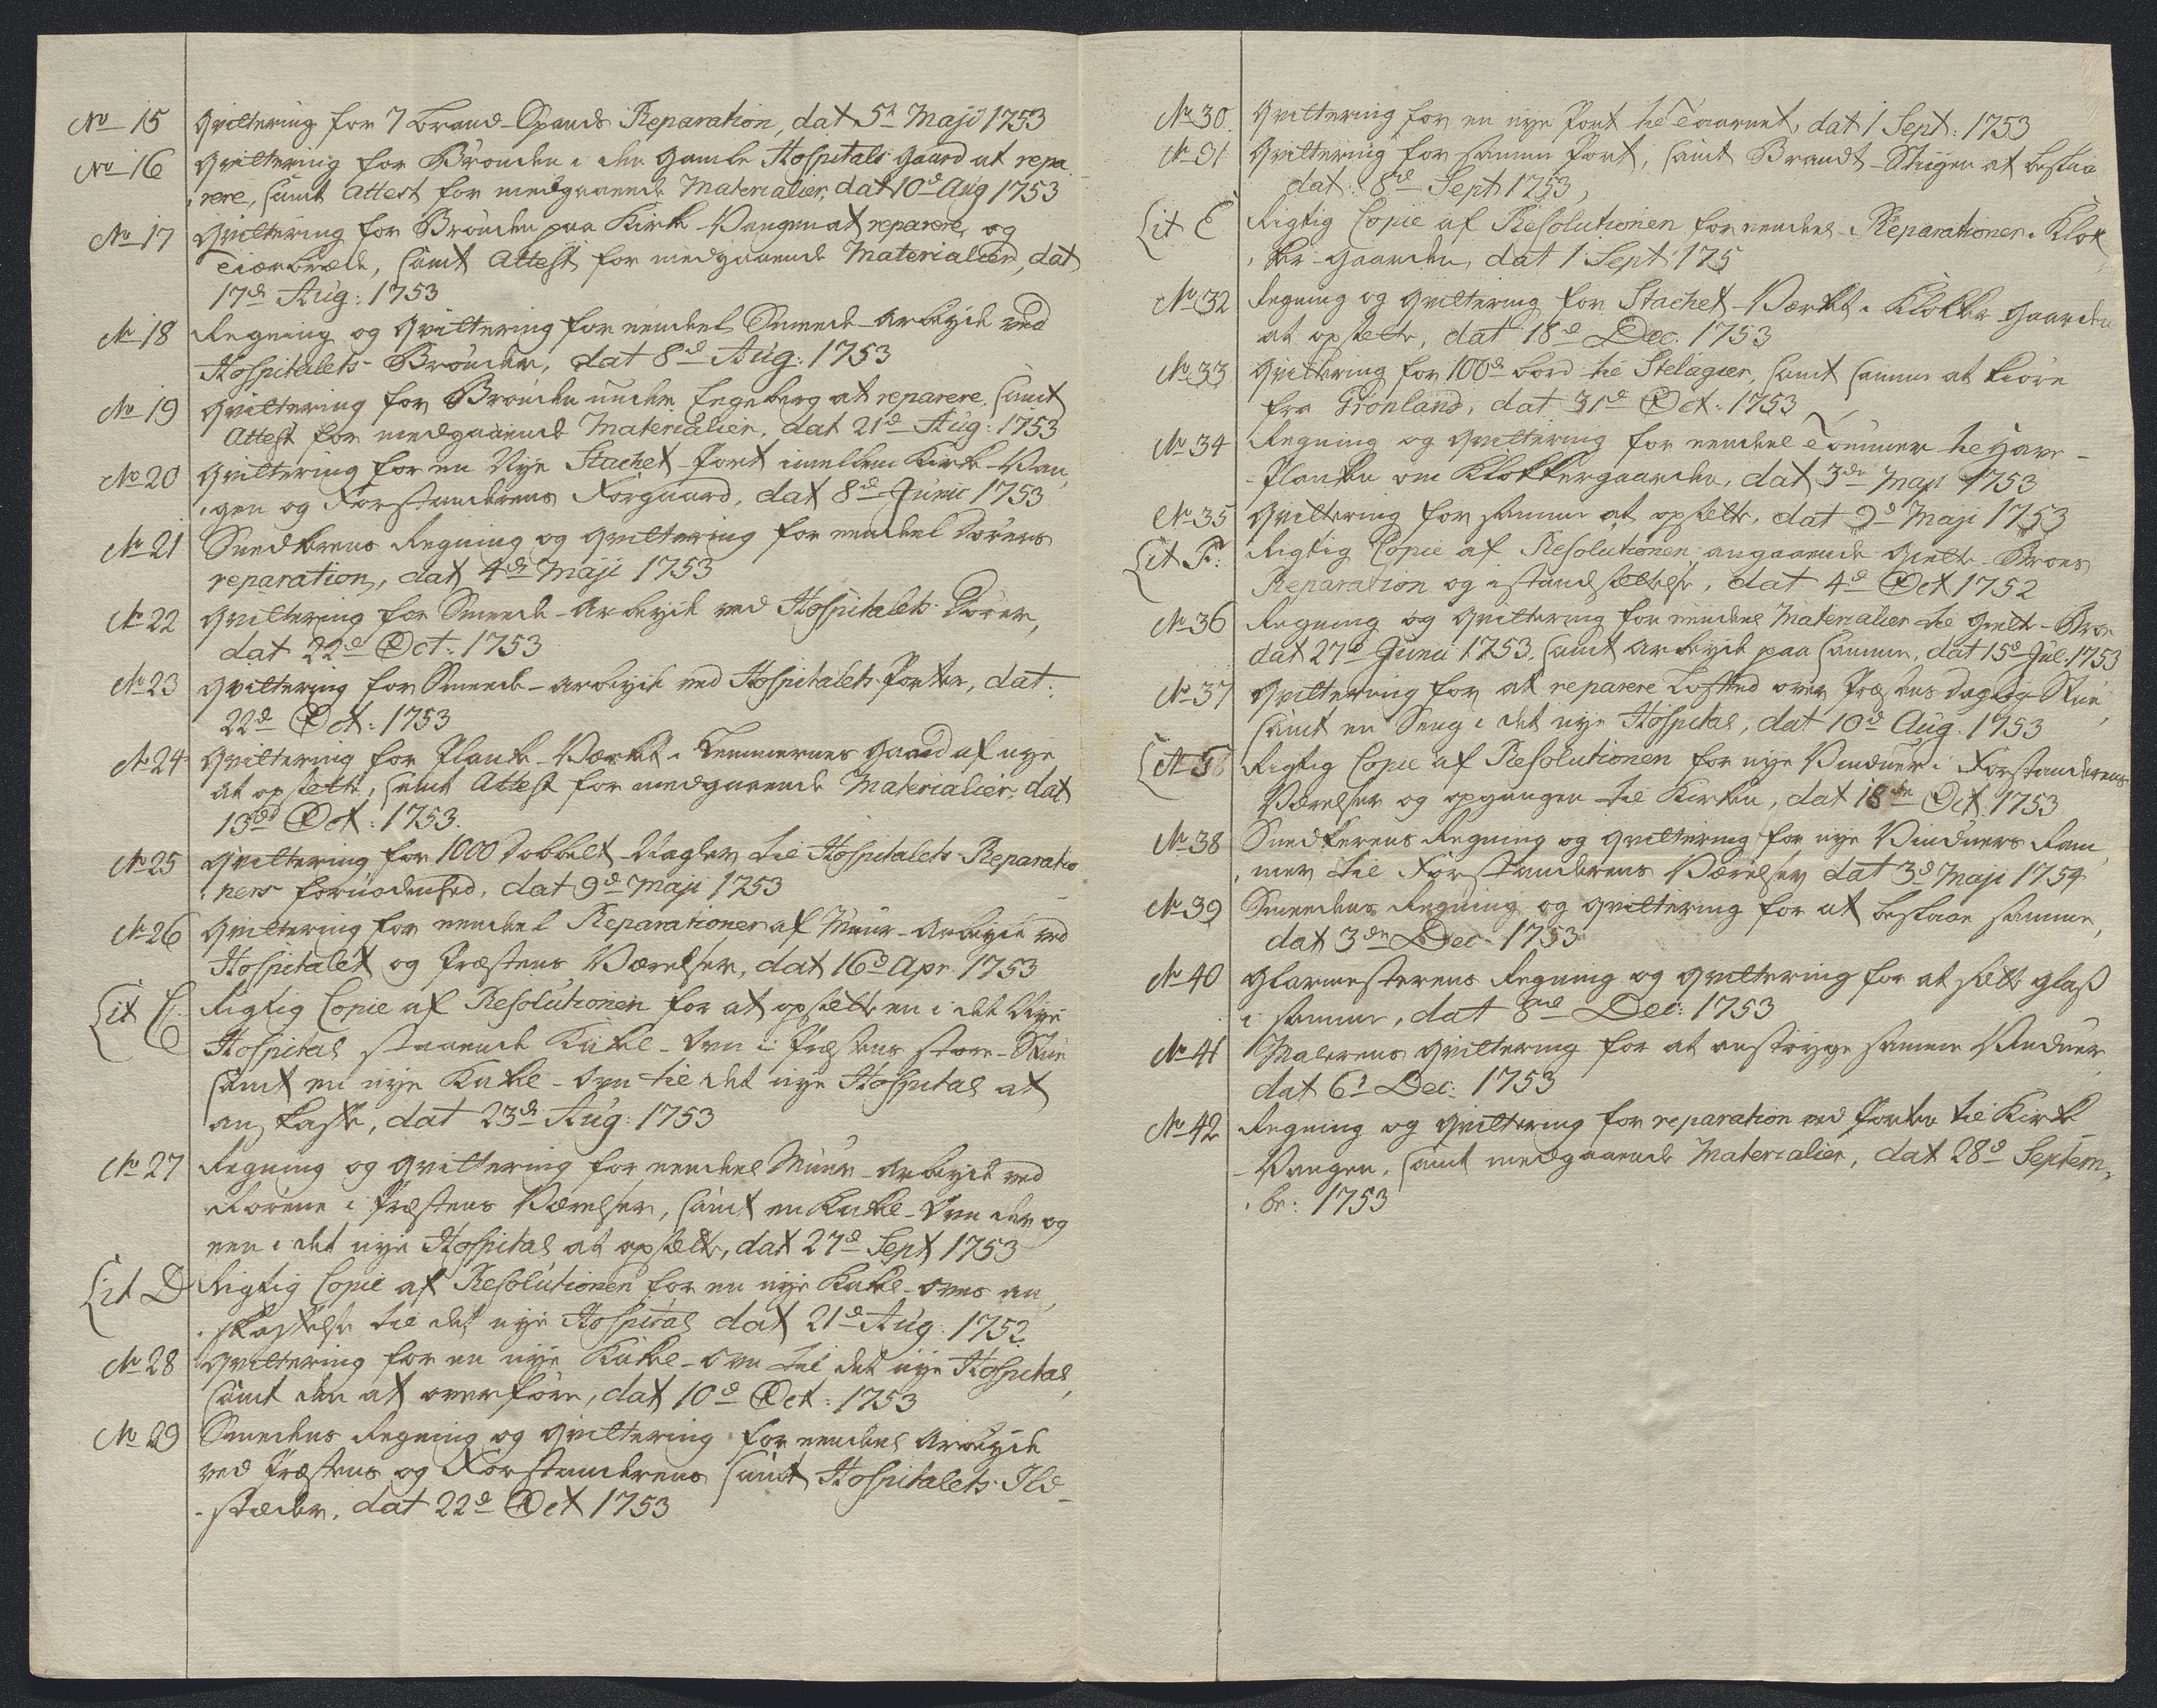 No 15 Qvittering for 7 brand-Spands Reparation, dat 5t Maji 1753
No 16 Qvittering for Brønden i den gamle Hospitals gaard at repa-
rere, samt Attest for medgaaende Materialier, dat 10d Aug 1753
No 17 Qvittering for Brønden paa Kirke-Vangen at reparere, og
samt Attest for medgaaende Materialier, dat
17de Aug: 1753
No 18 Regning og Qvittering for eendeel Smede-Arbeyde ved
Hospitalets-Brønder, dat 8d Aug: 1753
No 19 Qvittering for Brønden under Egeberg at reparere, samt
Attest for medgaaende Materialier, dat 21d Aug: 1753
No 20 Qvittering for en Nye Stachet-Port imellem Kirke-Van-
gen og Forstanderens Forgaard, dat 8d Junii 1753
No 21 Snedkerens Regning og Qvittering for eendeel Dørers
reparation, dat 4de Maji 1753
No 22 Qvittering for Smede-Arbeyde ved Hospitalets Dører,
dat 22d Oct: 1753
No 23 Qvittering for Smede-Arbeyde ved Hospitalets Porter, dat:
22d Oct: 1753
No 24 Qvittering for Planke-Værket i Lemmernes Gaard af nye
at opsette, samt Attest for medgaaende Materialier, dat
13de Oct: 1753.
No 25 Qvittering for 1000 dobbelt Nagler til Hospitalets Reparatio-
ners fornødenhed, dat 9d Maji 1753
No 26 Qvittering for eendeel Reparationer af Muur-Arbeyde ved
Hospitalet og Præstens Værelser, dat 16d Apr: 1753
Lit C. Rigtig Copie af Resolutionen for at opsette en i det Nye
Hospital staaende Kakel-Ovn i Præstens store-Stue
samt en nye Kakel-Ovn til det nye Hospital at
anskaffe, dat 23de Aug: 1753
No 27 Regning og Qvittering for eendeel Muur-Arbeyde ved
i Præstens Værelser, samt en Kakel-Ovn der og
een i det nye Hospital at opsette, dat 27d Sept 1753
Lit D Rigtig Copie af Resolutionen for en nye Kakel-Ovns an-
skaffelse til det nye Hospital dat 21d Aug: 1752
No 28 Qvittering for en nye Kakel-Ovn til det nye Hospital,
samt den at overføre, dat 10d Oct: 1753
No 29 Smedens Regning og Qvittering for eendeel Arbeyde
ved Præstens og Forstanderens samt Hospitalets Ild-
stæder, dat 22d Oct 1753
No 30. Qvittering for en nye Port til Taarnet, dat 1 Sept: 1753
No 31 Qvittering for samme Port, samt Brandt-Stigen at beslaa
dat: 8de Sept 1753,
Lit E Rigtig Copie af Resolutionen for eendeel Reparationer i Klok-
ker-Gaarden, dat 1 Sept: 175
No 32 Regning og Qvittering for Stachet-Værket i Klokker Gaarden
at opsette, dat 18d Dec: 1753
No 33 Qvittering for 100de bord til Stelagier, samt samme at kiøre
fra Grønland, dat 31d Oct: 1753
No 34 Regning og Qvittering for eendeel Tømmer til Have-
-Planken om Klokkergaarden, dat 3de Maji 1753
No 35 Qvittering for samme at opsette, dat 9d Maji 1753
Lit F: Rigtig Copie af Resolutionen angaaende Broes
Reparation og istandsettelse, dat 4d Oct 1752
No 36 Regning og Qvittering for eendeel Materialier til
dat 27d Junii 1753, samt Arbeyde paa samme, dat 15d Jul: 1753
No 37 Qvittering for at reparere Lofftet over Præstens Daglig-Stue,
samt en Seng i det nye Hospital, dat 10d Aug: 1753
Lit G Rigtig Copie af Resolutionen for nye Vinduer i Forstanderens
Værelser og opgangen til Kirken, dat 18de Oct. 1753
No 38 Snedkerens Regning og Qvittering for nye Vinduers Ram-
mer til Forstanderens Værelser dat 3d Maji 1754
No 39 Smedens Regning og Qvittering for at beslaae samme,
dat 3de Dec: 1753
No 40 Glarmesterens Regning og Qvittering for at sette glaß
i samme, dat 8de Dec: 1753
No 41 Malerens Qvittering for at anstryge samme Vinduer
dat 6t Dec: 1753
No 42 Regning og Qvittering for reparation ved Porten til Kirke-
-Vangen, samt medgaaende Materialier, dat 28d Septem-
br: 1753